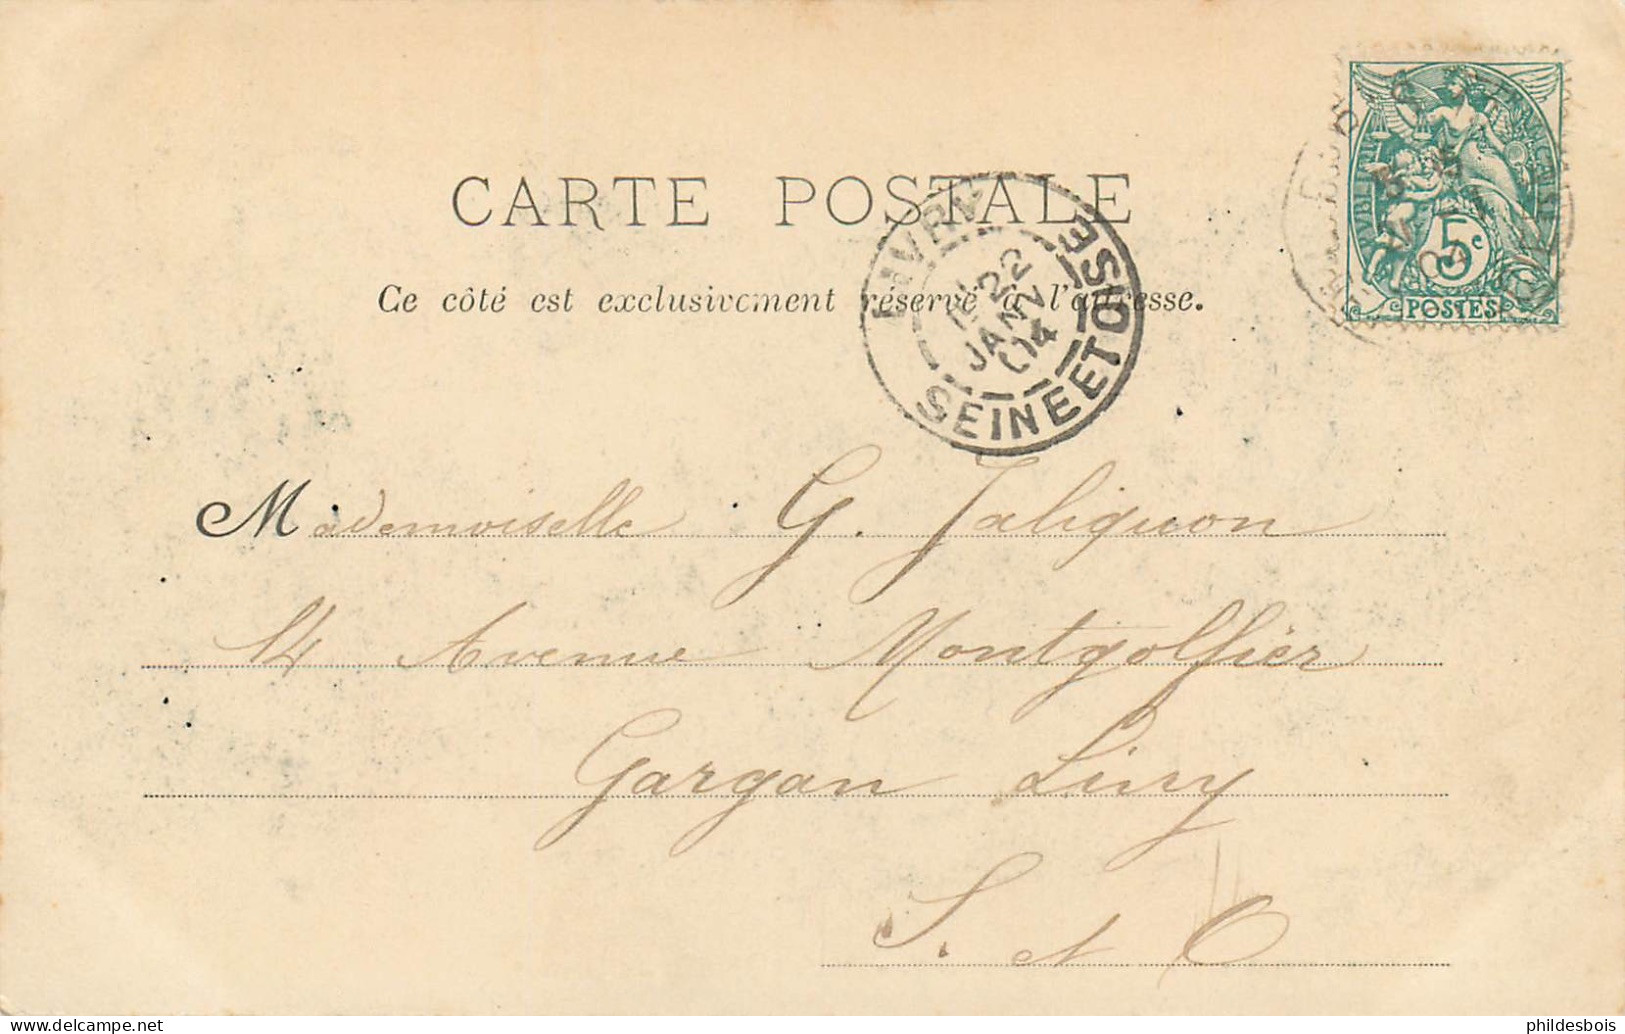 CARTE POSTALE
Ce côté est exclusivement réservé à l'adresse.
22
JANV
04
SEINE ET OISE
5c
POSTES
Mademoiselle G. Jaliquon
14 Avenue Montgolfier
Gargan Livry
S. et O
delcampe.net
phildesbois